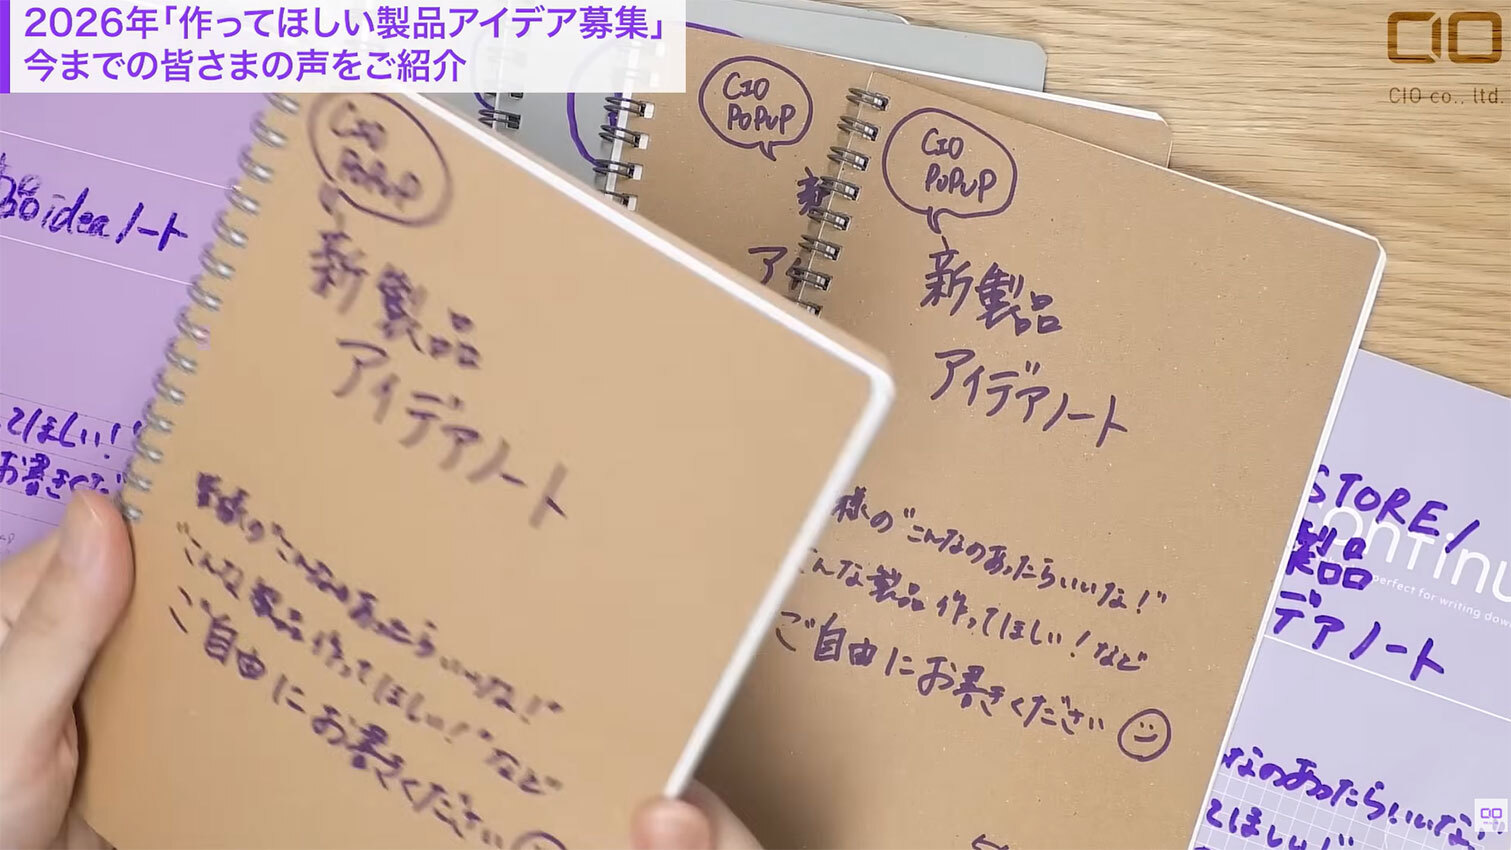 2026年「作ってほしい製品アイデア募集」
今までの皆さまの声をご紹介
CIO
CIO co., ltd.
品ideaノート
てほしい!
お書きくだ
CIO
POPUP
新製品
アイデアノート
皆様の"こんなのあったらいいな!"
"こんな製品作ってほしい!"など
ご自由にお書きください
CIO
POPUP
新
アイ
CIO
POPUP
新製品
アイデアノート
様の"こんなのあったらいいな!"
こんな製品作ってほしい!など
ご自由にお書きください
STORE/
製品
デアノート
continu
perfect for writing dow
なのあったらいいな!
てほしい!